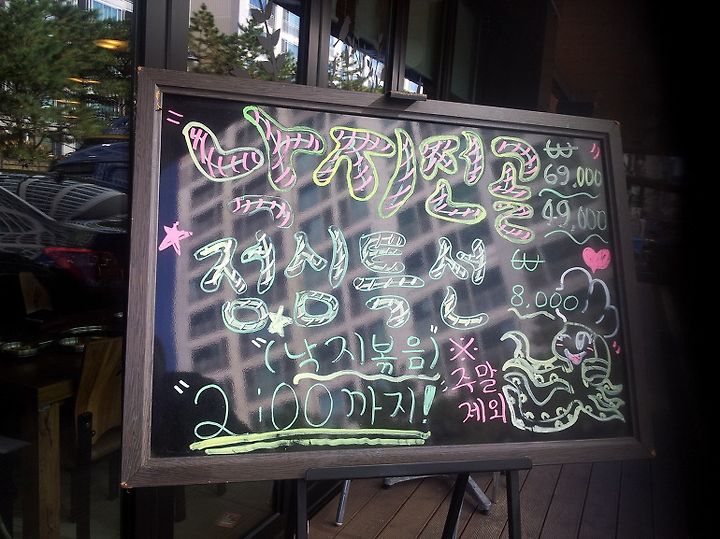 낙지전골 ₩ 69,000
49,000
점심특선 ₩ 8,000
"(낙지볶음)"
"2:00까지!"
※주말
제외